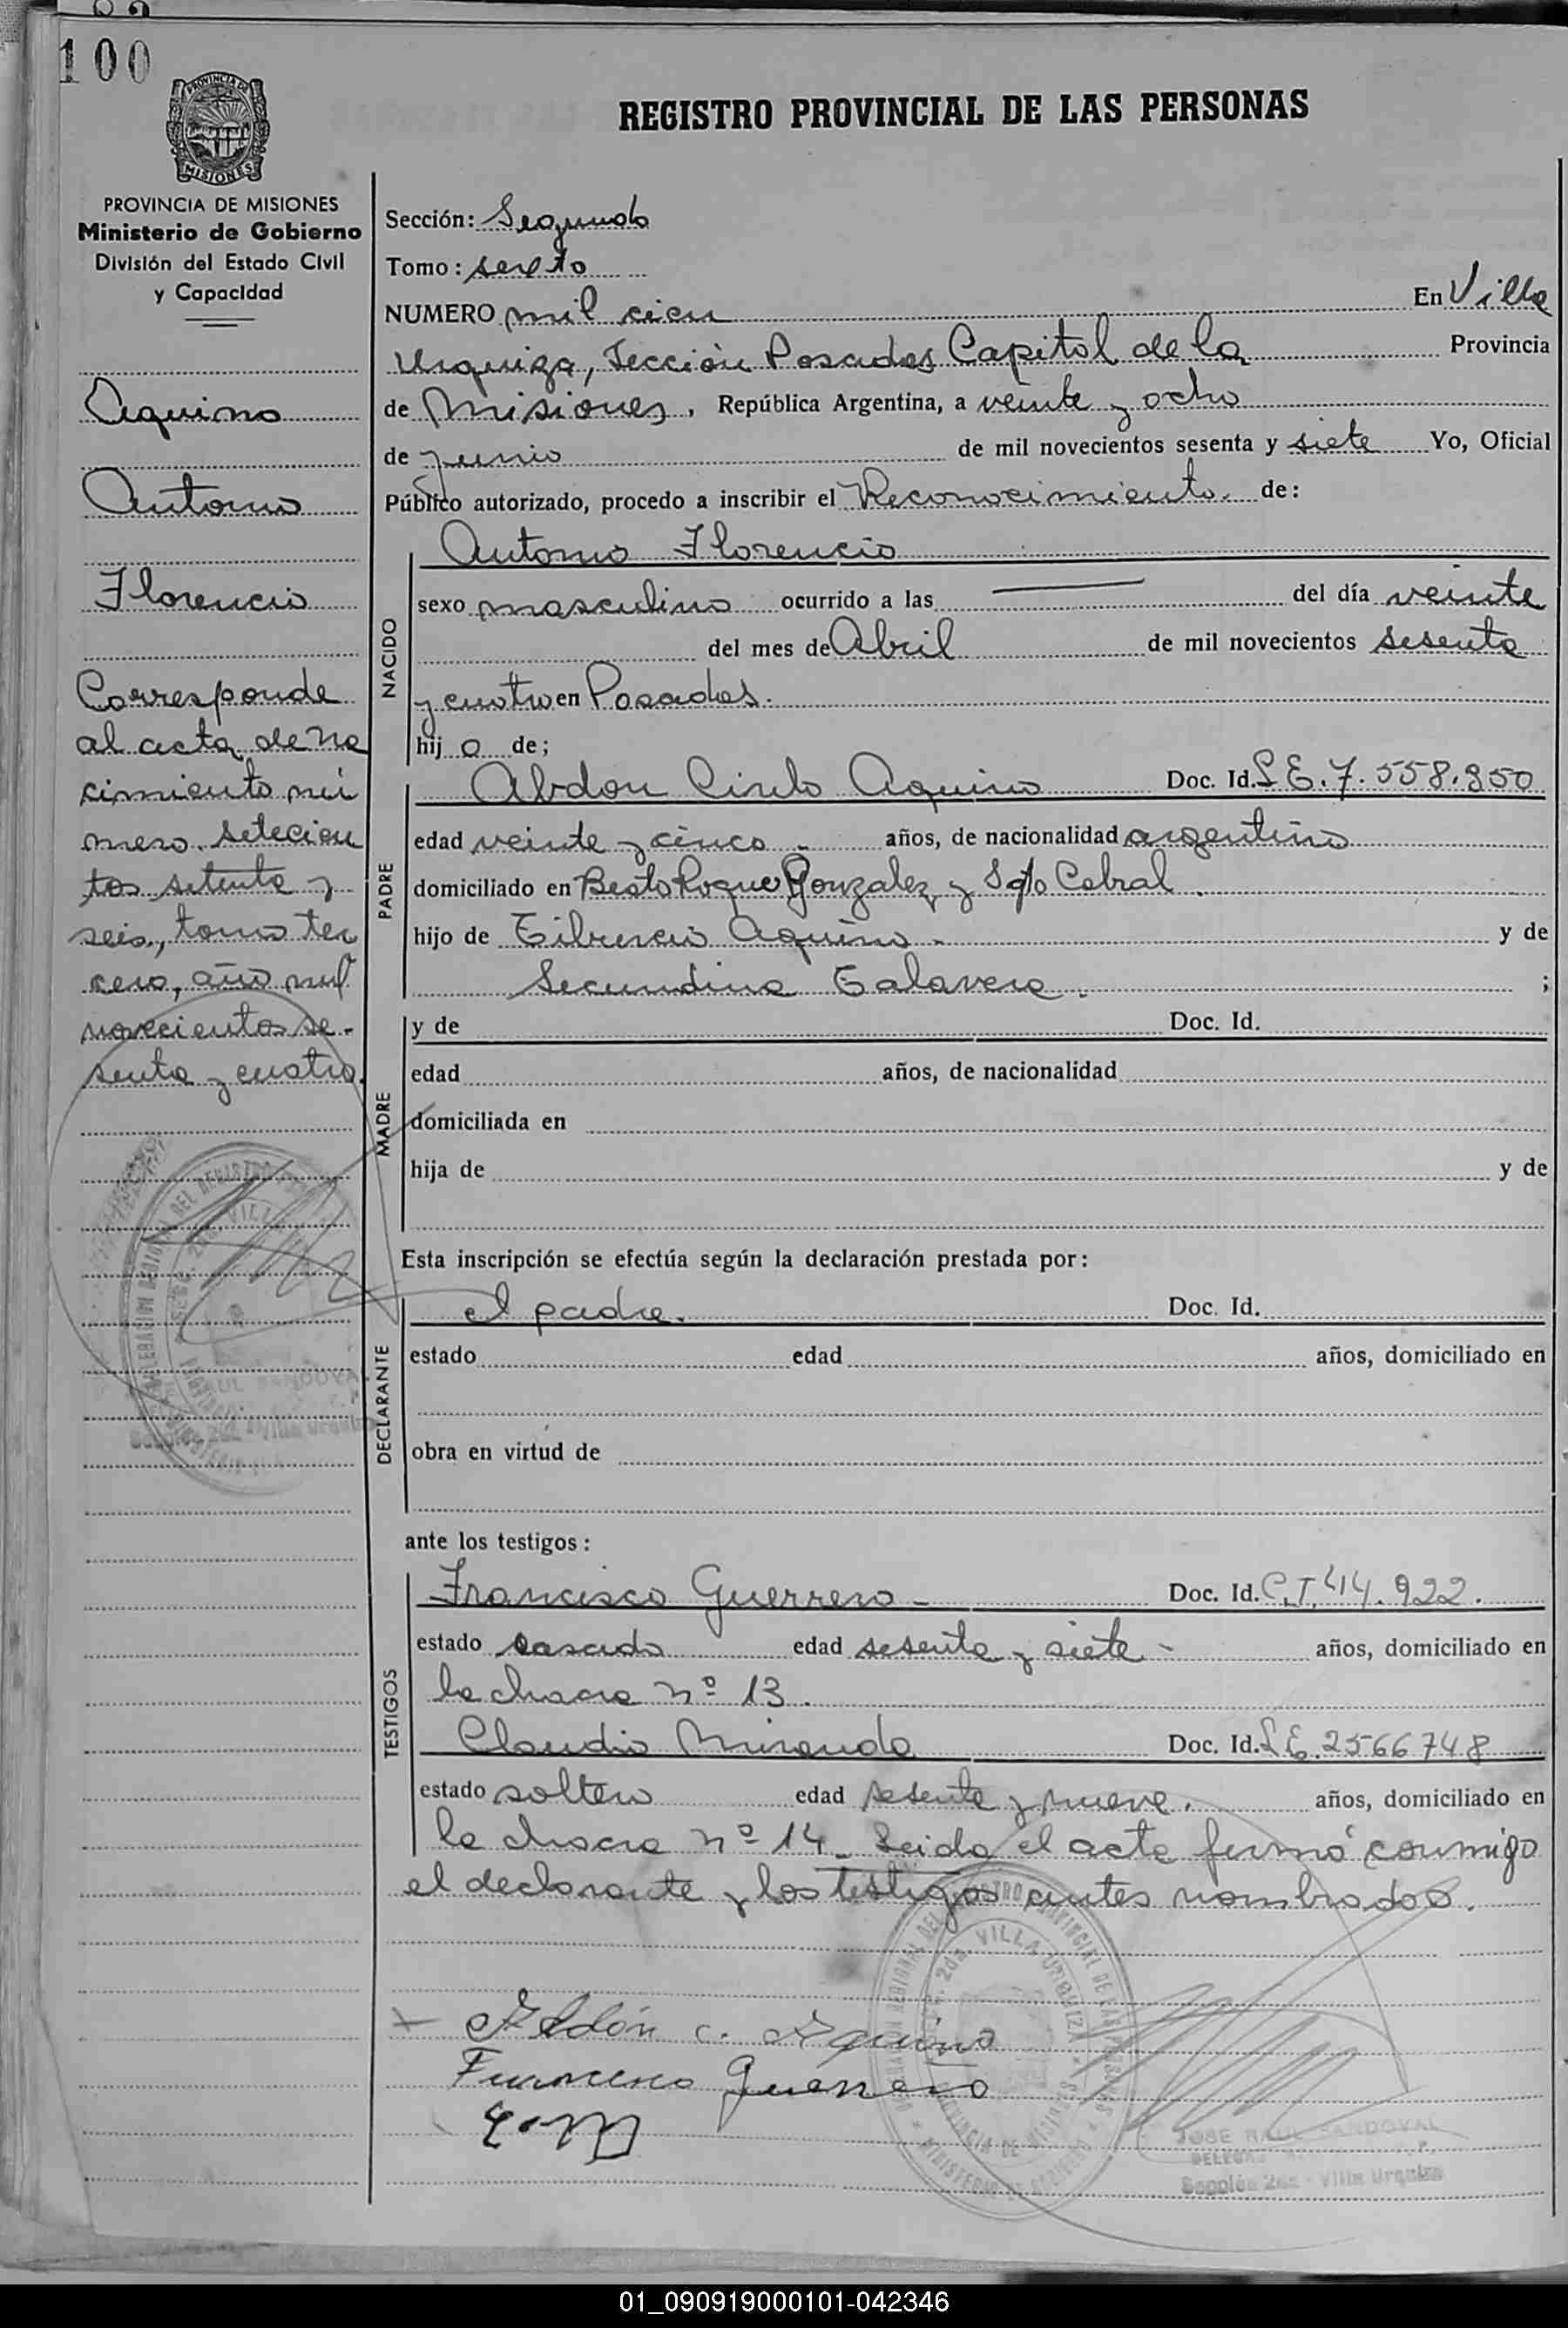 100
PROVINCIA DE
MISIONES
PROVINCIA DE MISIONES
Ministerio de Gobierno
División del Estado Civil
y Capacidad
Aquino
Antonio
Florencio
Corresponde
al acta de na
cimiento nú
mero setecien
tos setenta y
seis, tomo ter
cero, año mil
novecientos se-
senta y cuatro.
REGISTRO PROVINCIAL DE LAS PERSONAS
Sección: Segunda
Tomo: sexto
NUMERO mil cien En Villa
Urquiza, Sección Posadas Capital de la Provincia
de Misiones, República Argentina, a veinte y ocho
de junio de mil novecientos sesenta y siete Yo, Oficial
Público autorizado, procedo a inscribir el Reconocimiento. de:
NACIDO
Antonio Florencio
sexo masculino ocurrido a las — del día veinte
del mes de Abril de mil novecientos sesenta
y cuatro en Posadas.
hij o de;
PADRE
Abdon Cirilo Aquino Doc. Id. L.E. 7.558.850
edad veinte y cinco - años, de nacionalidad argentino
domiciliado en Beato Roque Gonzalez y Sgto Cabral.
hijo de Tiburcio Aquino - y de
Secundina Talavera. ;
MADRE
y de Doc. Id.
edad años, de nacionalidad
domiciliada en
hija de y de
Esta inscripción se efectúa según la declaración prestada por:
DECLARANTE
el padre. Doc. Id.
estado edad años, domiciliado en
obra en virtud de
ante los testigos:
TESTIGOS
Francisco Guerrero - Doc. Id. C.I. 414.922.
estado casado edad sesenta y siete - años, domiciliado en
la chacra nº 13.
Claudio Miranda Doc. Id. L.E. 2566748
estado soltero edad sesenta y nueve. años, domiciliado en
la chacra nº 14_ Leida el acta firmó conmigo
el declarante y los testigos antes nombrados.
Abdón c. Aquino
Francisco Guerrero
JOSE RAUL SANDOVAL
Sección 2da - Villa Urquiza
01_090919000101-042346